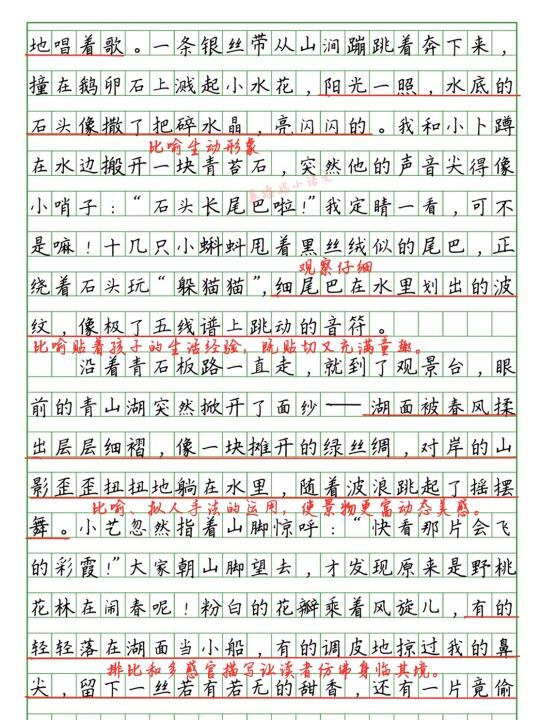 地唱着歌。一条银丝带从山涧蹦跳着奔下来，
撞在鹅卵石上溅起小水花，阳光一照，水底的
石头像撒了把碎水晶，亮闪闪的。我和小卜蹲
比喻生动形象
在水边搬开一块青苔石，突然他的声音尖得像
小哨子：“石头长尾巴啦！”我定睛一看，可不
是嘛！十几只小蝌蚪甩着黑丝绒似的尾巴，正
观察仔细
绕着石头玩“躲猫猫”，细尾巴在水里划出的波
纹，像极了五线谱上跳动的音符。
比喻贴着孩子的生活经验，既贴切又充满童趣。
沿着青石板路一直走，就到了观景台，眼
前的青山湖突然掀开了面纱——湖面被春风揉
出层层细褶，像一块摊开的绿丝绸，对岸的山
影歪歪扭扭地躺在水里，随着波浪跳起了摇摆
比喻、拟人手法的运用，使景物更富动态美感。
舞。小艺忽然指着山脚惊呼：“快看那片会飞
的彩霞！”大家朝山脚望去，才发现原来是野桃
花林在闹春呢！粉白的花瓣乘着风旋儿，有的
轻轻落在湖面当小船，有的调皮地掠过我的鼻
排比和多感官描写让读者仿佛身临其境。
尖，留下一丝若有若无的甜香，还有一片竟偷